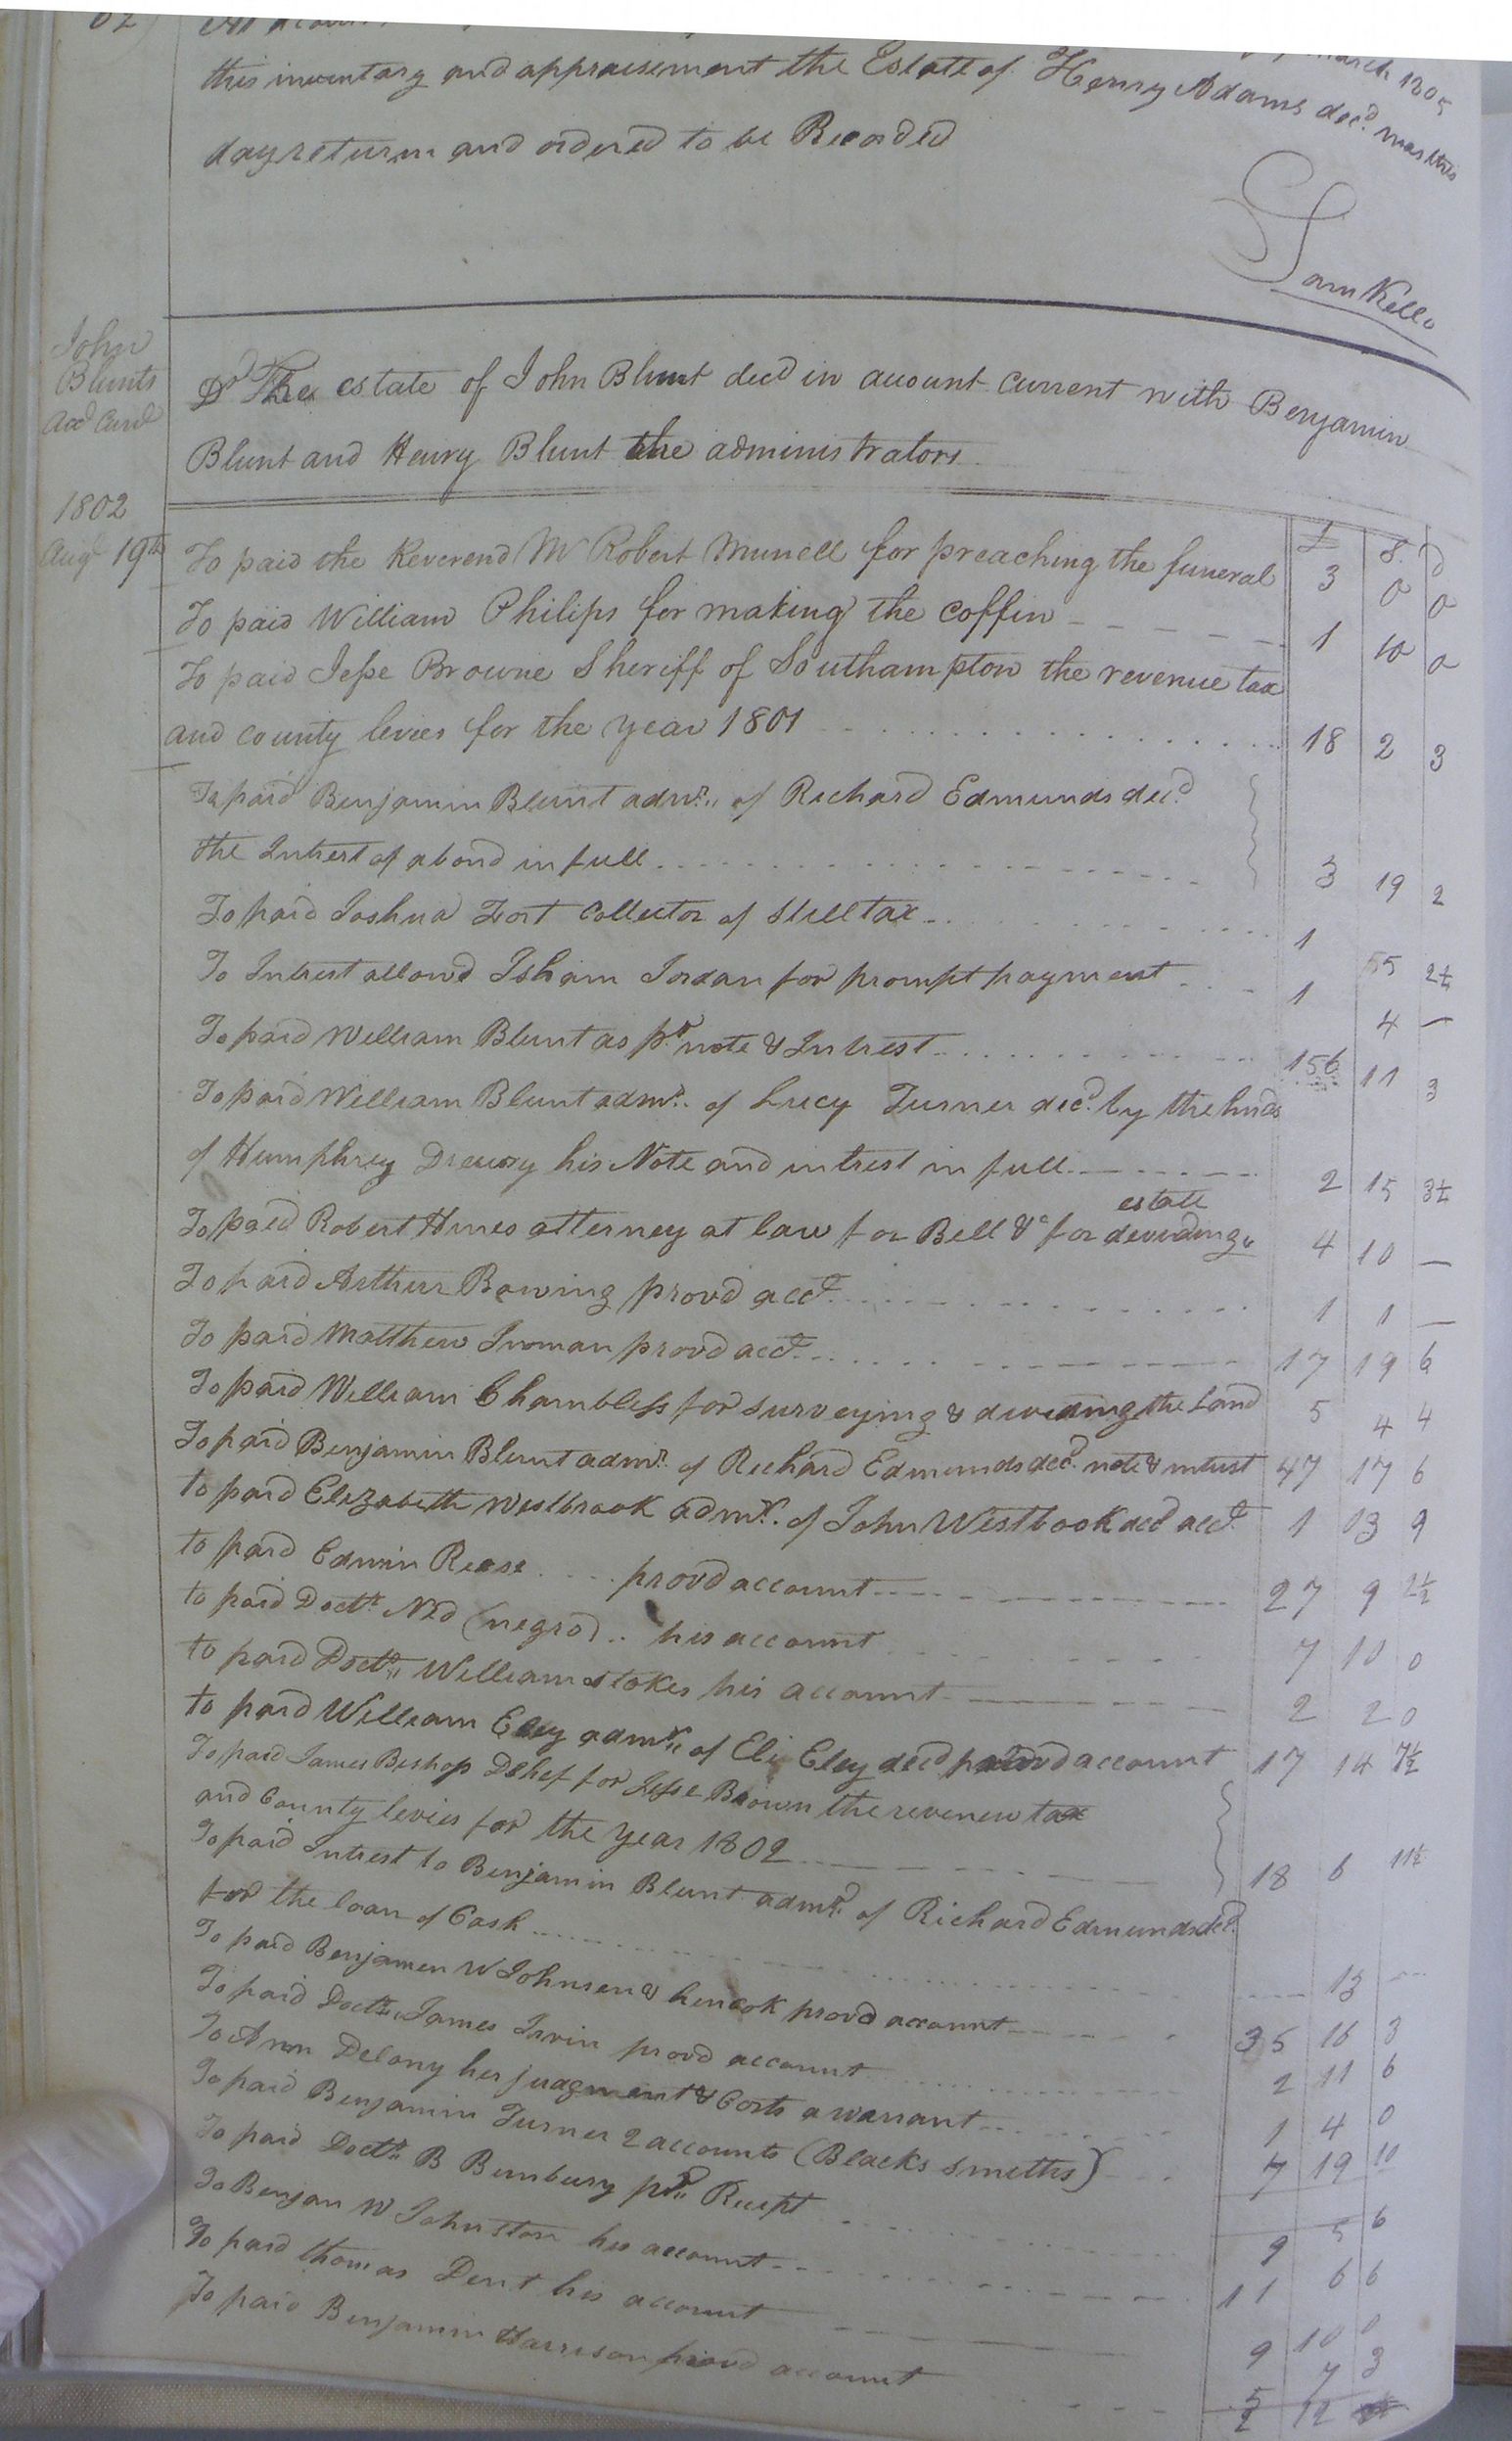 this inventory and appraisement the Estate of Henry Adams decd. was this
day return and ordered to be Recorded
Sam Kello
John
Blunts
Acct Curt
Dr The estate of John Blunt decd in account current with Benjamin
Blunt and Henry Blunt the administrators
1802
£ S. d
Augt 19th To paid the Reverend Mr Robert Murrell for preaching the funeral 3 0 0
To paid William Philips for making the coffin 1 10 0
To paid Jesse Browne Sheriff of Southampton the revenue tax
and county levies for the year 1801 18 2 3
To paid Benjamin Blunt admr. of Richard Edmunds decd.
the Intrest of a bond in full 3 19 2
To paid Joshua Fort Collector of Still tax 1 2½
To Intrest allowd Isham Jordan for prompt payment 1 4 —
To paid William Blunt as pr. note & Intrest 156 11 3
To paid William Blunt admr. of Lucy Turner decd. by the hnds
of Humphrey Drewry his Note and intrest in full 2 15 3½
estate
To paid Robert Hines atterney at law for Bell &c for deviding 4 10 —
To paid Arthur Bowing provd acct. 1 1 —
To paid Matthew Inman provd acct. 17 19 6
To paid William Chambless for surveying & deviding the Land 5 4 4
To paid Benjamin Blunt admr. of Richard Edmunds decd. note & intrest 47 17 6
to paid Elizabeth Westbrook admx. of John Westbook decd acct. 1 13 9
to paid Edwin Rease provd account 27 9 2½
to paid Doctr. Ned (negro) his account 7 10 0
to paid Doctr. William Stokes his account 2 2 0
to paid William Eley admr. of Eli Eley decd provd account 17 14 7½
To paid James Bishop D Shef for Jesse Brown the revenew tax
and County levies for the year 1802 18 6 11½
To paid Intrest to Benjamin Blunt admr. of Richard Edmunds decd.
for the loan of Cash 13 —
To paid Benjamen W Johnsen & provd account 35 16 3
To paid Doctr. James Irvin provd account 2 11 6
To Ann Delony her judgment & Costs a warrant 1 4 0
To paid Benjamin Turner 2 accounts (Blacks smiths) 7 19 10
To paid Doctr. B Bunbury pr. Recept 9 5 6
To Benjan W Johnston his account 11 6 6
To paid thomas Dent his account 9 10 0
To paid Benjamin Harrison provd account 5 7 3
2 12